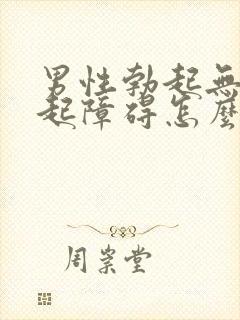 男性勃起無
起障碍怎麼
周崇堂